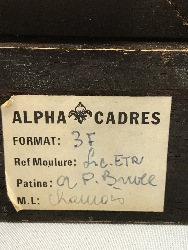 ALPHA CADRES
FORMAT: 3F
Ref Moulure:
Patine: P.
M.L: Chamois